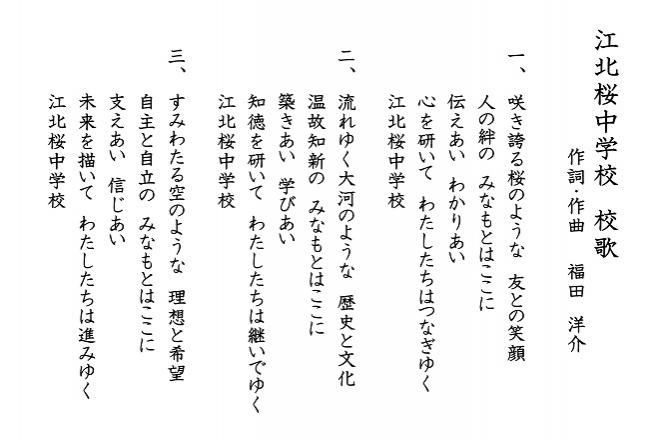 江北桜中学校　校歌
作詞・作曲　福田　洋介
一、咲き誇る桜のような　友との笑顔
人の絆の　みなもとはここに
伝えあい　わかりあい
心を研いて　わたしたちはつなぎゆく
江北桜中学校
二、流れゆく大河のような　歴史と文化
温故知新の　みなもとはここに
築きあい　学びあい
知徳を研いて　わたしたちは継いでゆく
江北桜中学校
三、すみわたる空のような　理想と希望
自主と自立の　みなもとはここに
支えあい　信じあい
未来を描いて　わたしたちは進みゆく
江北桜中学校